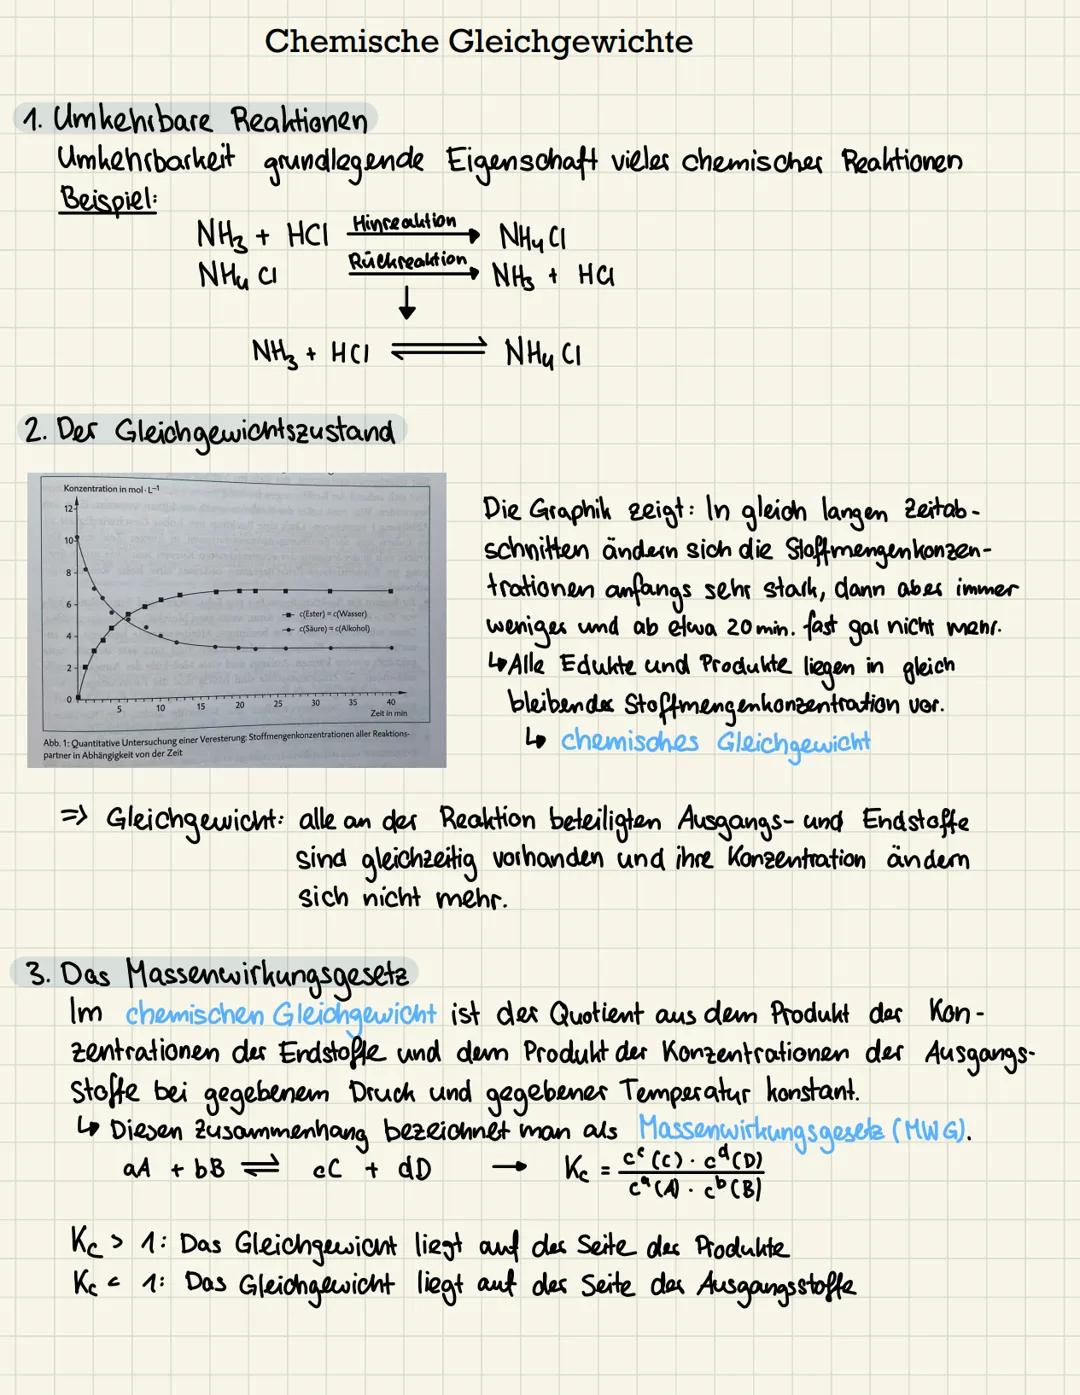 Chemische Gleichgewichte
1. Umkehrbare Reaktionen
Umkehrbarkeit grundlegende Eigenschaft vieler chemischer Reaktionen
Beispiel:
NH₃ + HCl Hinreaktion → NH₄Cl
NH₄Cl Rückreaktion → NH₃ + HCl
↓
NH₃ + HCl ⇌ NH₄Cl
2. Der Gleichgewichtszustand
Konzentration in mol · L⁻¹
12
10
8
6
4
2
0
c(Ester) = c(Wasser)
c(Säure) = c(Alkohol)
5 10 15 20 25 30 35 40
Zeit in min
Abb. 1: Quantitative Untersuchung einer Veresterung: Stoffmengenkonzentrationen aller Reaktions-
partner in Abhängigkeit von der Zeit
Die Graphik zeigt: In gleich langen Zeitab-
schnitten ändern sich die Stoffmengenkonzen-
trationen anfangs sehr stark, dann aber immer
weniger und ab etwa 20 min. fast gar nicht mehr.
↳ Alle Edukte und Produkte liegen in gleich
bleibender Stoffmengenkonzentration vor.
↳ chemisches Gleichgewicht
=> Gleichgewicht: alle an der Reaktion beteiligten Ausgangs- und Endstoffe
sind gleichzeitig vorhanden und ihre Konzentration ändern
sich nicht mehr.
3. Das Massenwirkungsgesetz
Im chemischen Gleichgewicht ist der Quotient aus dem Produkt der Kon-
zentrationen der Endstoffe und dem Produkt der Konzentrationen der Ausgangs-
Stoffe bei gegebenem Druck und gegebener Temperatur konstant.
↳ Diesen Zusammenhang bezeichnet man als Massenwirkungsgesetz (MWG).
aA + bB ⇌ cC + dD → Kc = cᶜ(C) · cᵈ(D) / cᵃ(A) · cᵇ(B)
Kc > 1: Das Gleichgewicht liegt auf der Seite der Produkte
Kc < 1: Das Gleichgewicht liegt auf der Seite der Ausgangsstoffe